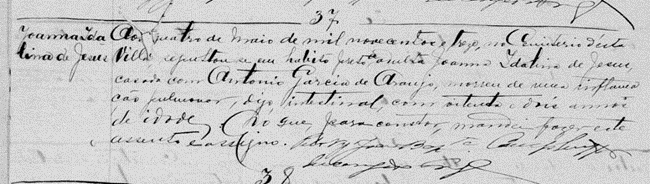 37
Joanna Ida
lina de Jesus
Aos quatro de maio de mil novecentos e treze, no Cemiterio desta
Villa sepultou-se em habito preto Joanna Idalina de Jesus,
casada com Antonio Garcia de Araujo, morreu de uma inflama
ção pulmonar, digo, intestinal, com oitenta e dois annos
de idade. Do que, para constar, mandei fazer este
assento e assigno.
38